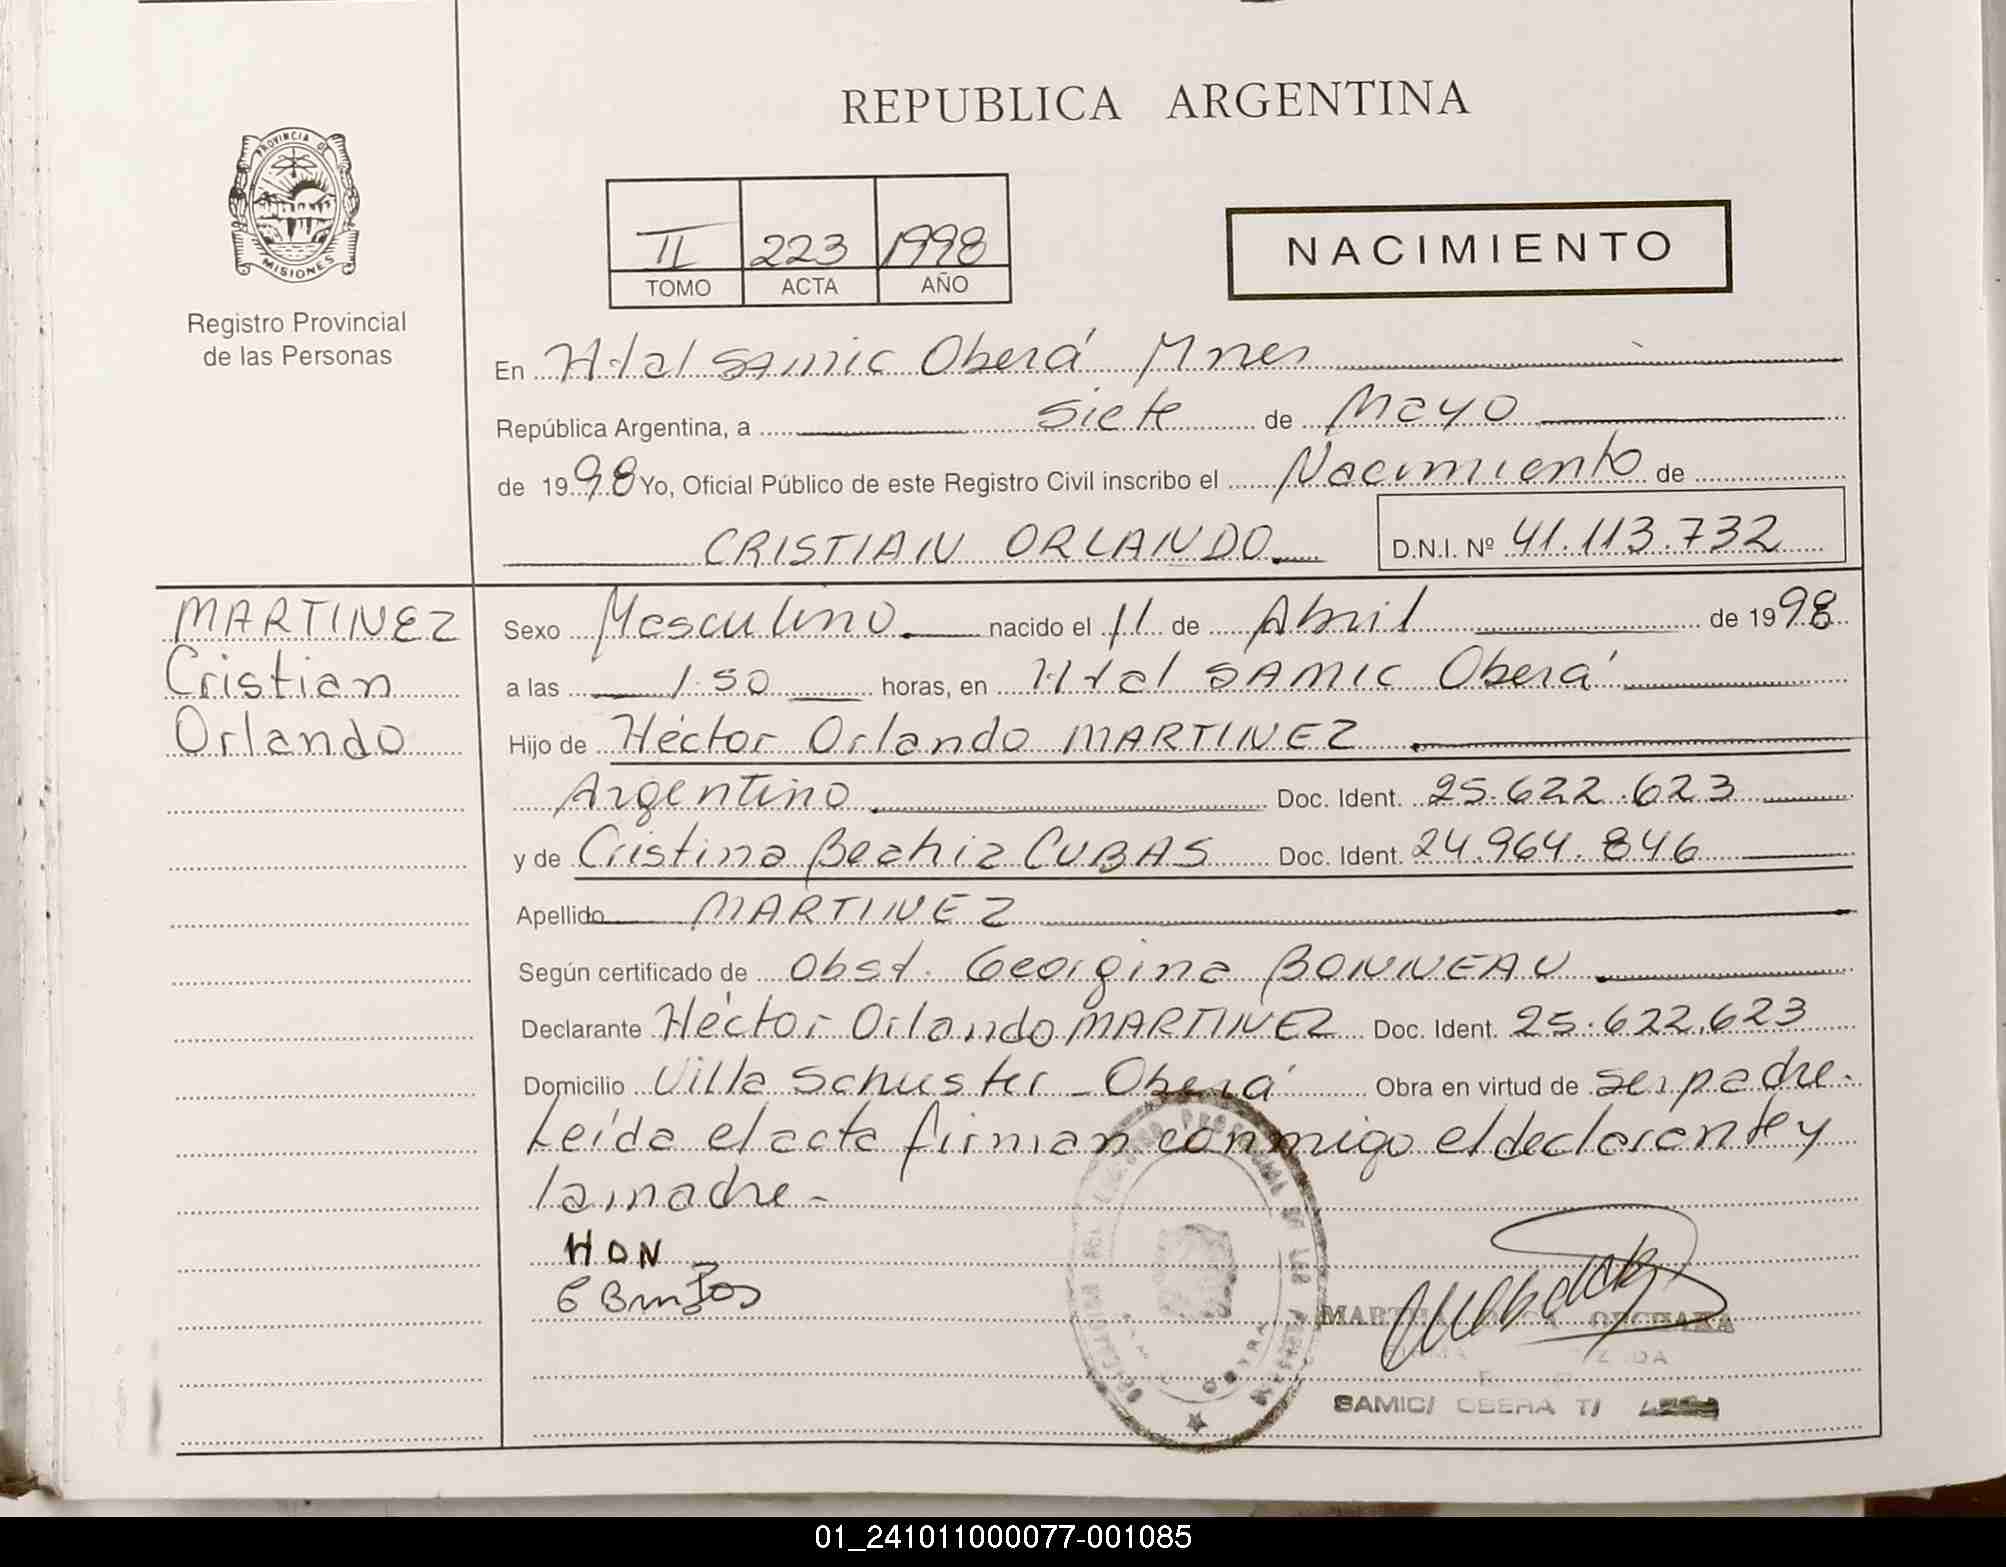 REPUBLICA ARGENTINA
PROVINCIA DE
MISIONES
Registro Provincial
de las Personas
II 223 1998
TOMO ACTA AÑO
NACIMIENTO
En Htal SAMIC Oberá Mnes
República Argentina, a siete de Mayo
de 1998 Yo, Oficial Público de este Registro Civil inscribo el Nacimiento de
CRISTIAN ORLANDO D.N.I. Nº 41.113.732
MARTINEZ
Cristian
Orlando
Sexo Masculino nacido el 11 de Abril de 1998
a las 1.50 horas, en Htal SAMIC Oberá
Hijo de Héctor Orlando MARTINEZ
Argentino Doc. Ident. 25.622.623
y de Cristina Beatriz CUBAS Doc. Ident. 24.964.846
Apellido MARTINEZ
Según certificado de Obst. Georgina BONNEAU
Declarante Héctor Orlando MARTINEZ Doc. Ident. 25.622.623
Domicilio Villa Schuster - Oberá Obra en virtud de ser padre.
Leída el acta firman conmigo el declarante y
la madre -
HON
SAMIC/ OBERA
01_241011000077-001085